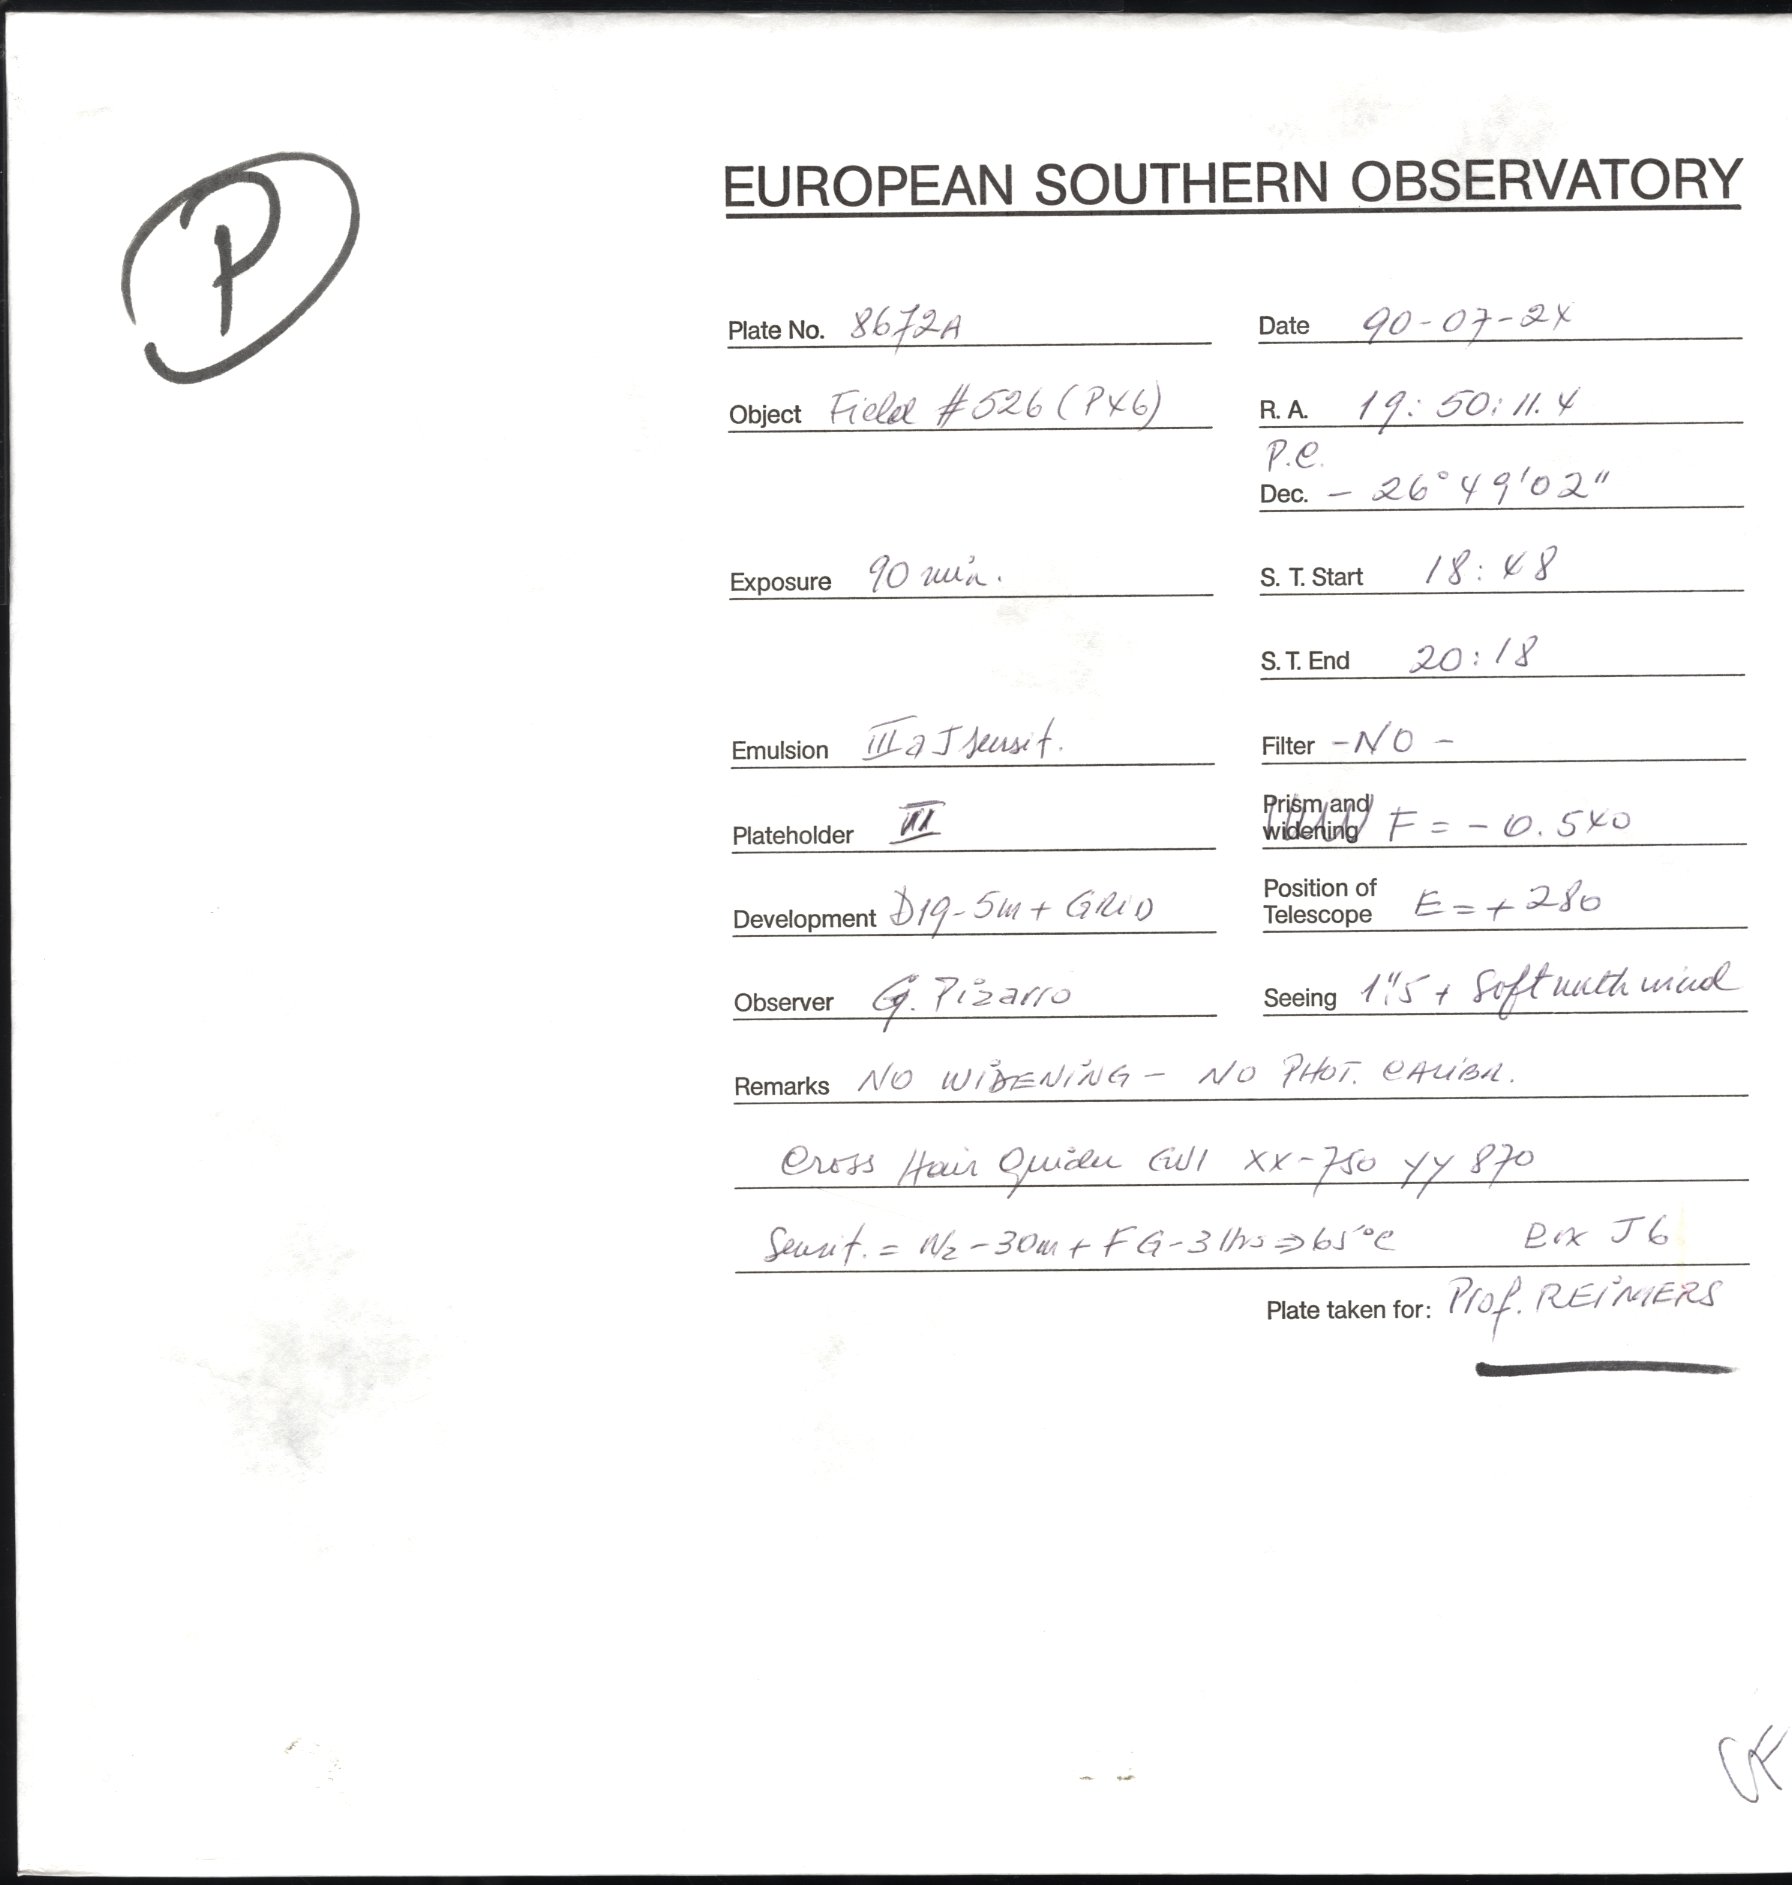 P
EUROPEAN SOUTHERN OBSERVATORY
Plate No. 8672A
Date 90-07-24
Object Field #526 (P46)
R. A. 19: 50: 11.4
P.C.
Dec. - 26° 49' 02"
Exposure 90 min.
S. T. Start 18: 48
S. T. End 20:18
Emulsion IIIaJ sensit.
Filter -NO-
Plateholder III
Prism and widening F = - 0.540
Development D19-5m + GRID
Position of Telescope E = + 280
Observer G. Pizarro
Seeing 1".5 + Soft north wind
Remarks NO WIDENING - NO PHOT. CALIBR.
Cross Hair Guider GW1 XX-750 YY 870
Sensit. = N2 - 30m + FG - 3 1hrs => 65°C Box J6
Plate taken for: Prof. REIMERS